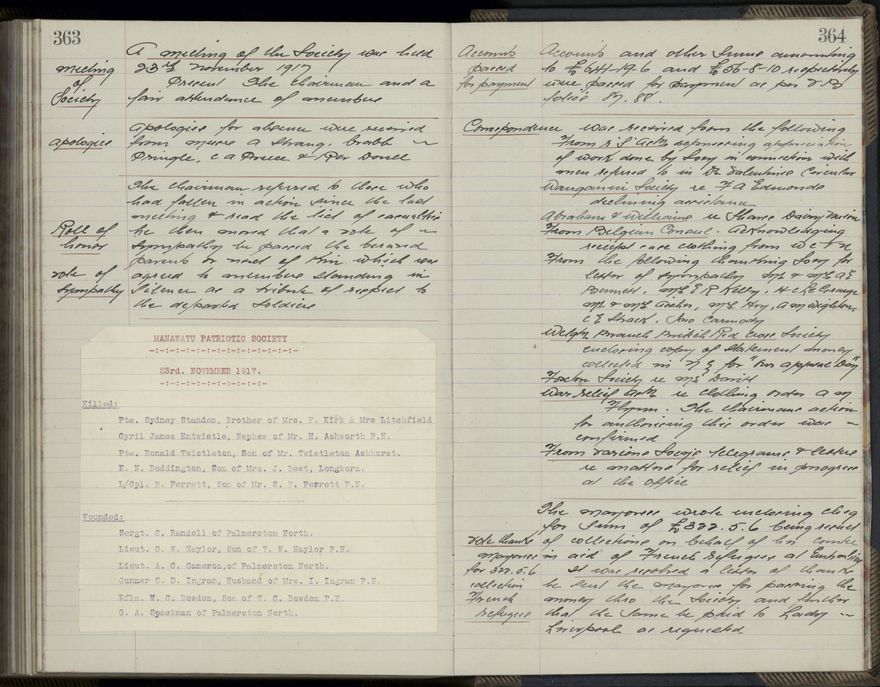 363
Meeting
of
Society
A meeting of the Society was held
23rd November 1917
Present The Chairman and a
fair attendance of members
apologies
Apologies for absence were received
from
Pringle, &
The Chairman referred to those who
had fallen in action since the last
meeting & read the list of casualties
Roll of
honor
he then moved that a vote of
sympathy be passed the bereaved
parents or next of Kin which was
vote of
Sympathy
agreed to members standing in
Silence as a tribute of respect to
the departed Soldiers
MANAWATU PATRIOTIC SOCIETY
-:-:-:-:-:-:-:-:-:-:-:-:-:-:-
23rd. NOVEMBER 1917.
-:-:-:-:-:-:-:-:-:-
Killed:
Pte. Sydney Standen, Brother of Mrs. F. Kirk & Mrs Litchfield
Cyril James Entwistle, Nephew of Mr. H. Ashworth P.N.
Pte. Ronald Twistleton, Son of Mr. Twistleton Ashhurst.
Boddington, Son of Mrs. J. Best, Longburn.
L/Cpl. R. Perrett, Son of Mr. S. F. Perrett P.N.
Wounded:
Sergt. C. Randell of Palmerston North.
Lieut. C. W. Naylor, Son of T. W. Naylor P.N.
Lieut. A. C. Cameron,of Palmerston North.
Gunner C. D. Ingram, Husband of Mrs. I. Ingram P.N.
Rflm. W. C. Bowden, Son of T. C. Bowden P.N.
G. A. Speckman of Palmerston North.
364
Accounts
passed
for payment
Accounts and other Sums amounting
to £644-19-6 and £56-8-10 respectively
were passed for payment as per
folios 87. 88.
Correspondence was received from the following
From appreciation
of work done by Socy in connection with
men referred to in Dr Valentines Circular
Wanganui Society re F A Edmonds
declining assistance
Abraham & Williams re Shares Dairy Union
From Belgian Consul. acknowledging
receipt case clothing from
From the following thanking Socy for
letter of sympathy Mr & Mrs A E
Bennett, Mrs E R Kelly,
Mr & Mrs Mrs Hoy,
C E Jno Carmody
Welgtn Branch British Red Cross Society
enclosing copy of Statement money
collected in N Z for "Our Day"
Foxton Society re Mrs David
War relief re clothing order a m
Flynn. The Chairmans action
for authorising this order was
confirmed
From various Socys telegrams & letters
re matters for relief in progress
at the Office
The Mayoress wrote enclosing chq
for Sum of £322.5.6 being result
vote thanks
Mayoress
for 322.5.6
collection
French
refugees
of collections on behalf of her Comtee
in aid of French Refugees at
It was resolved a letter of thanks
be sent the Mayoress for passing the
money thro the Society and further
that the Same be paid to Lady
Liverpool as requested